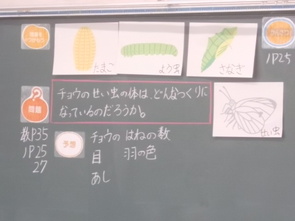 たまご
よう虫
さなぎ
1P25
問題
チョウのせい虫の体は、どんなつくりに
なっているのだろうか。
せい虫
教P35
1P25
27
予想
チョウの はねの数
目 羽の色
あし